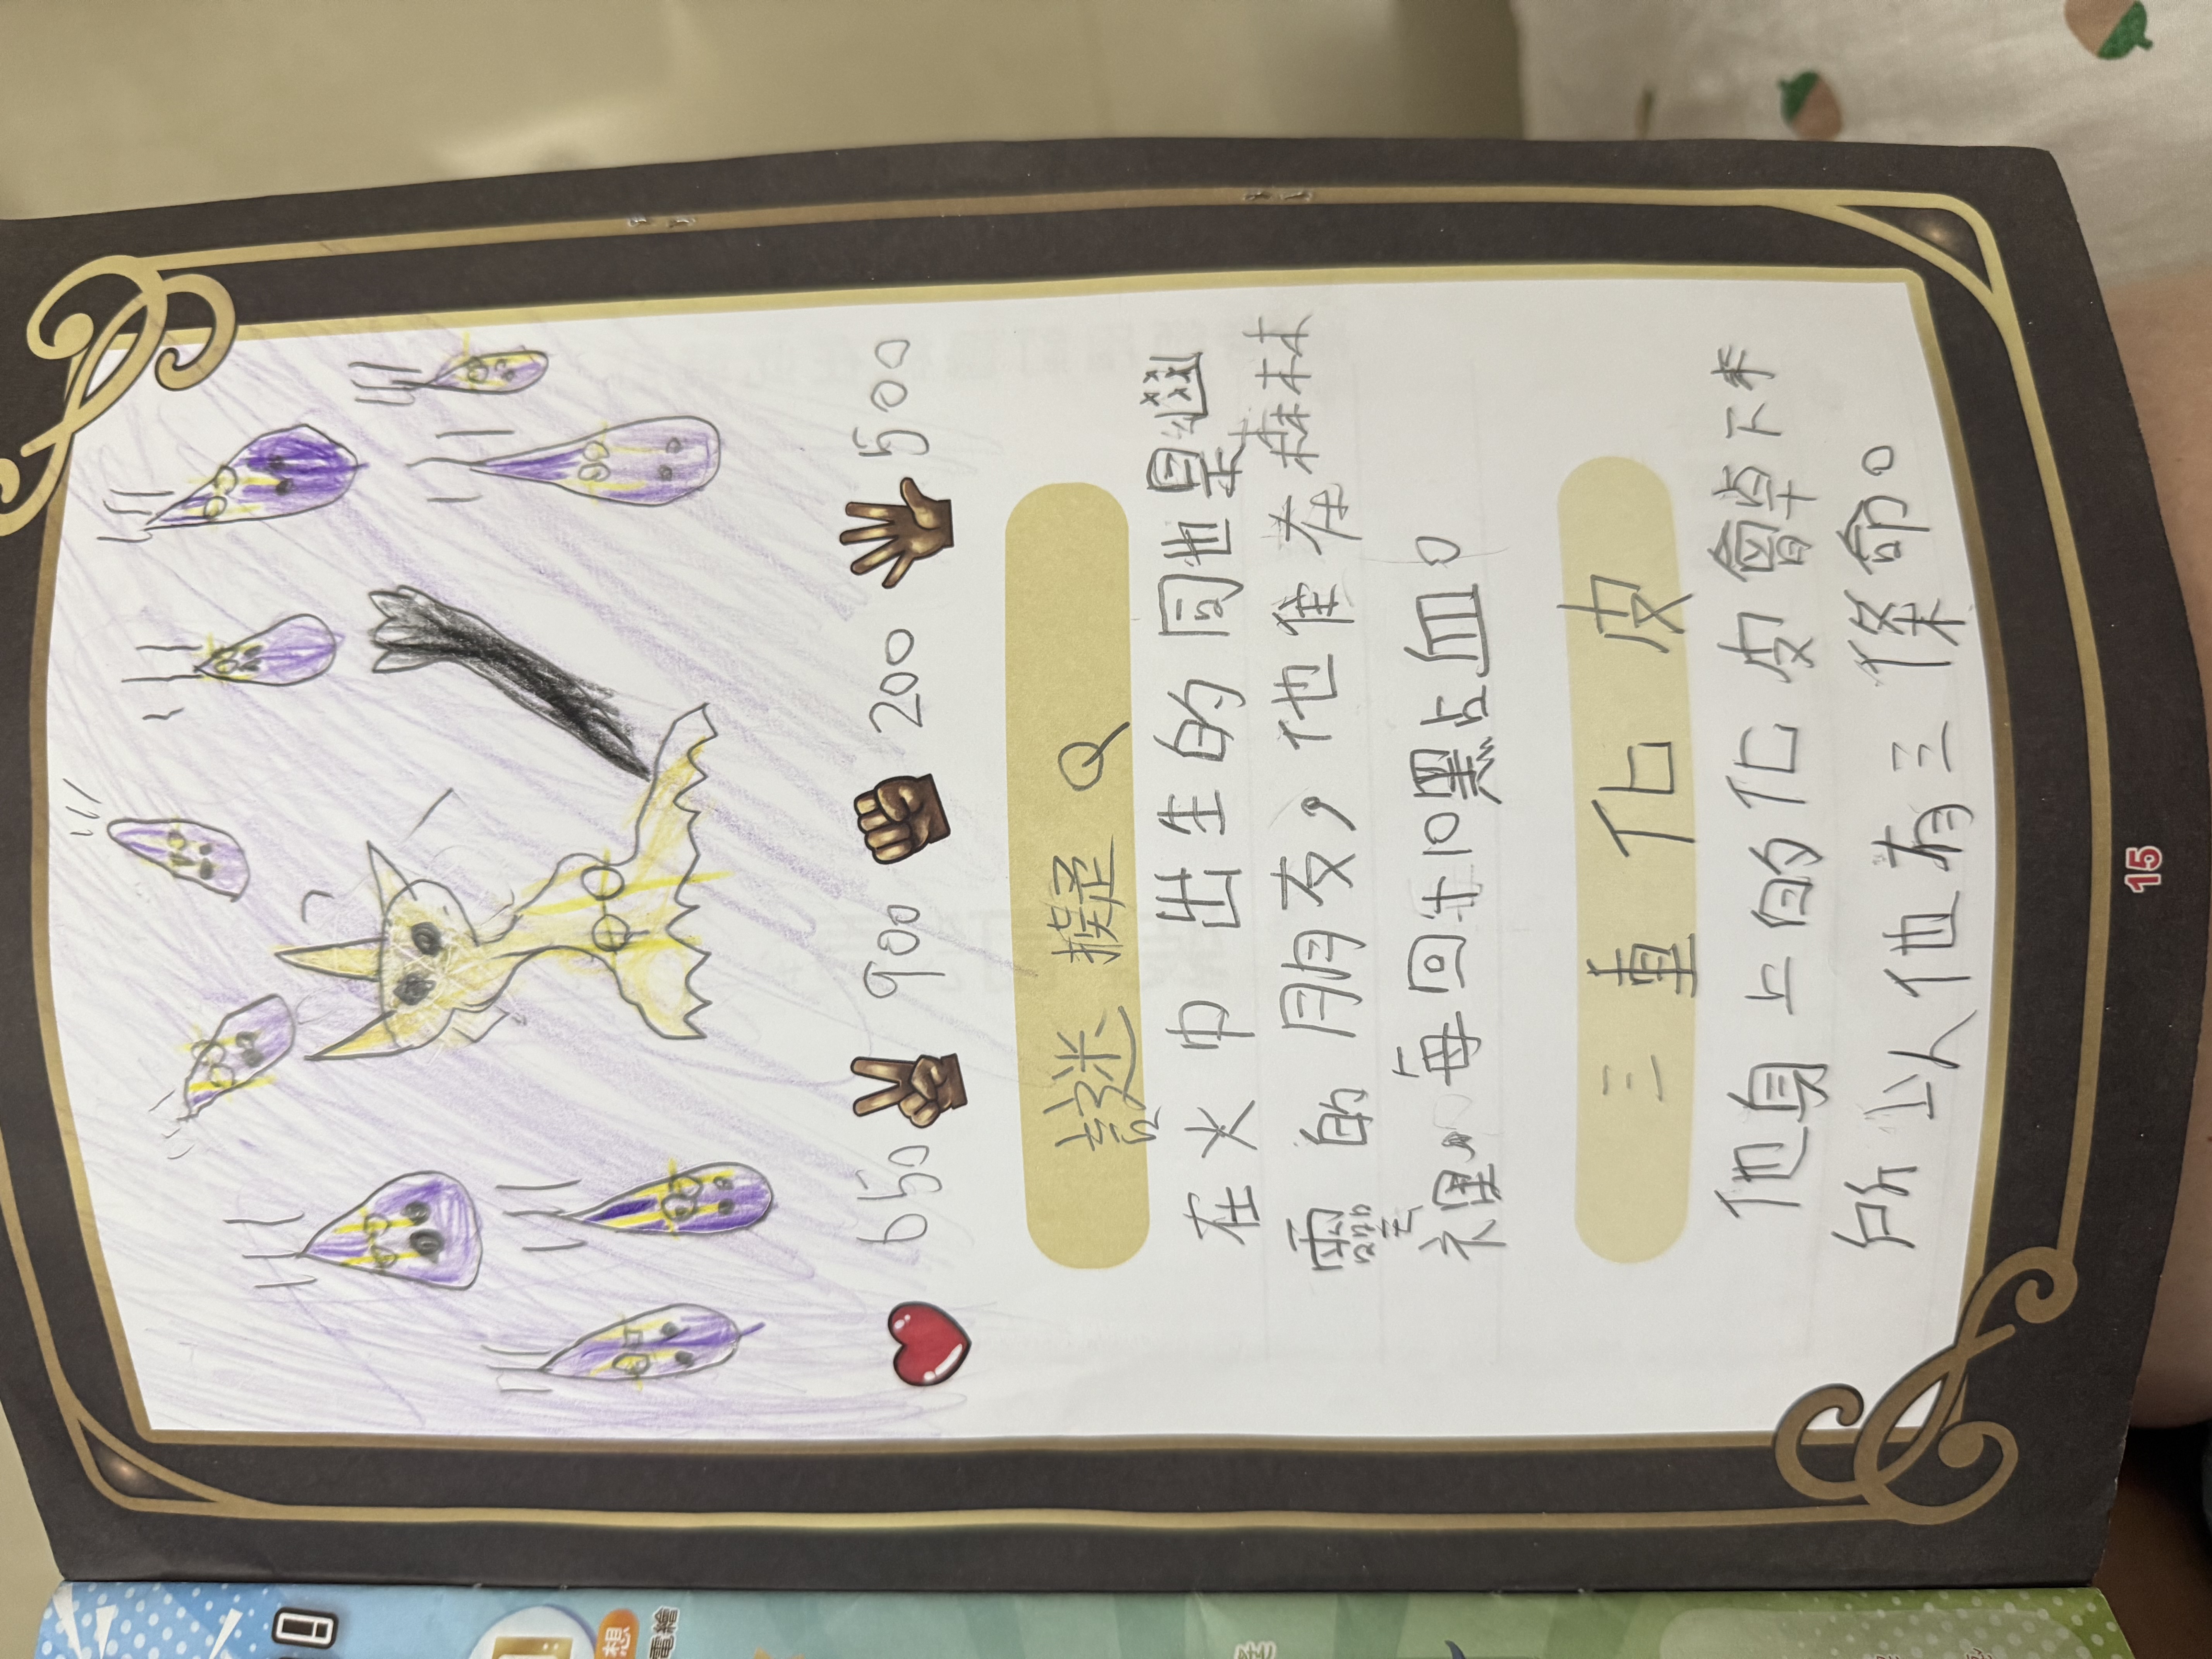 650 900 200 500
謎擬Q
在火中出生的同也是惱
靈的朋友，他住在森林
裡。每回十10黑占血。
三重化皮
他身上的化皮會掉下來
所以他有三條命。
15
想
電繪